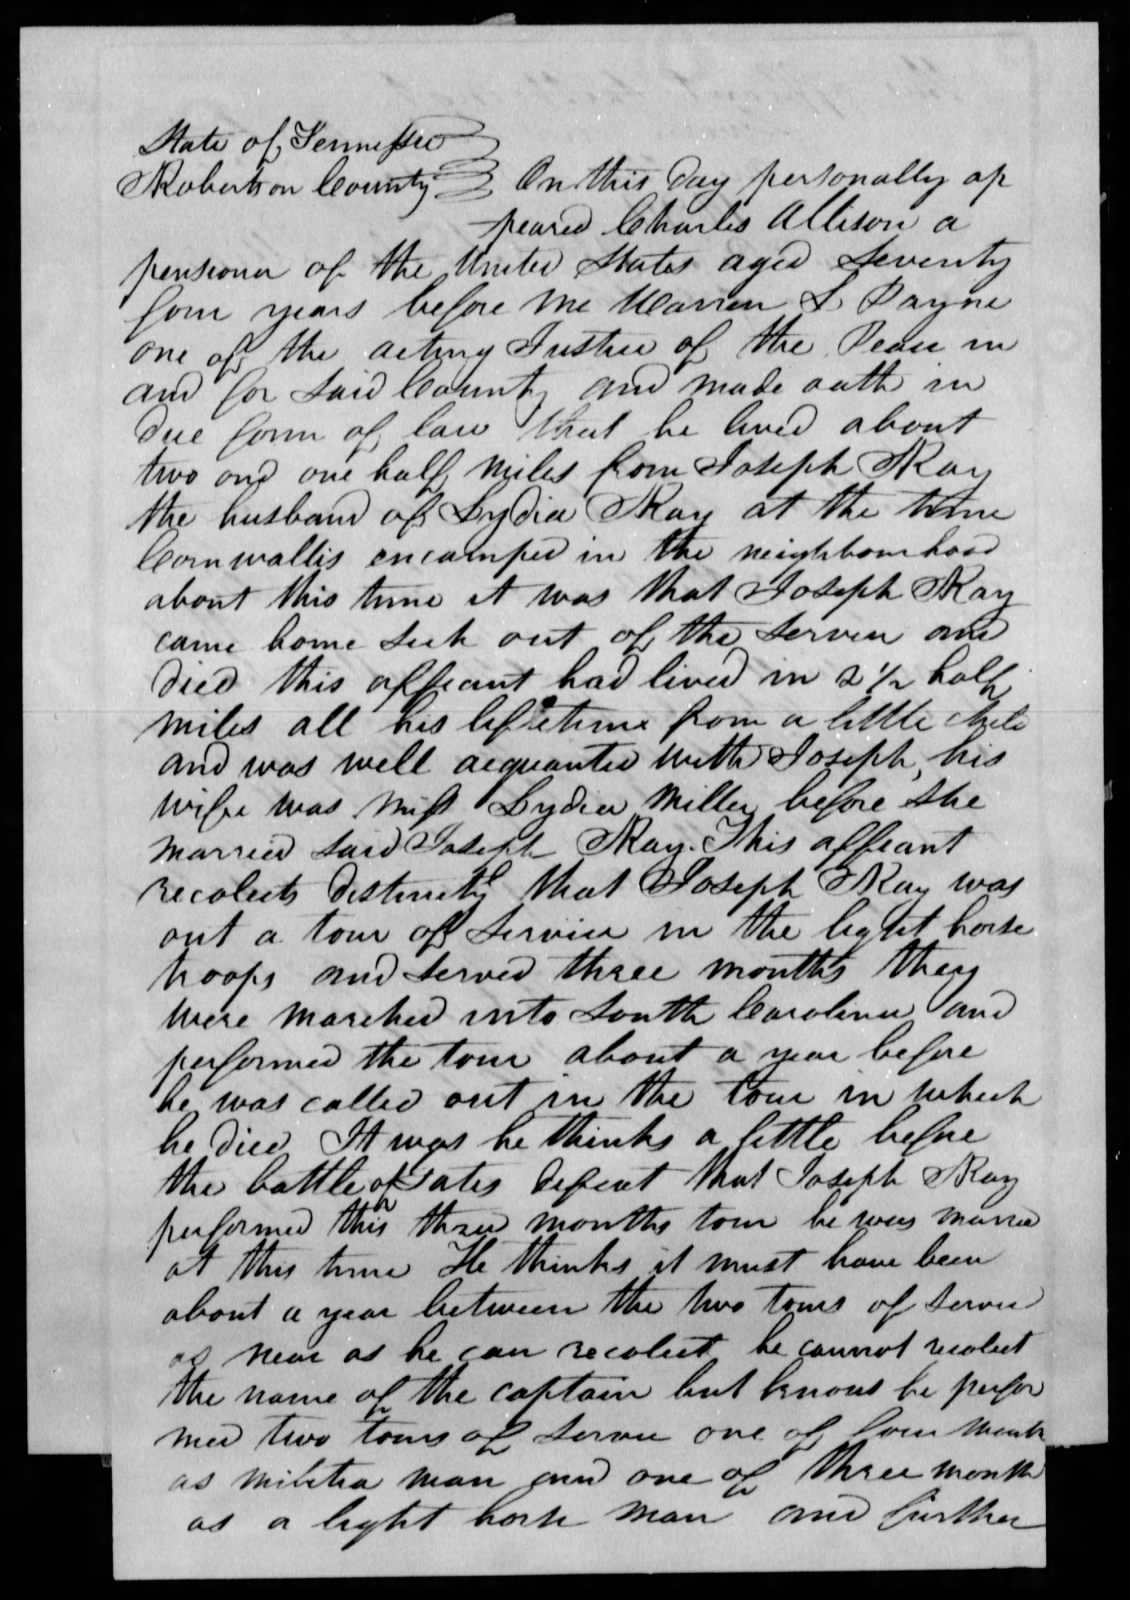 State of Tennessee
Robertson County } On this day personally ap
peared Charles Allison a
pensioner of the United States aged Seventy
four years before me Warren L Payne
one of the acting Justice of the Peace in
and for said County and made oath in
due form of law that he lived about
two and one half miles from Joseph Ray
the husband of Lydia Ray at the time
Cornwallis encamped in the neighbourhood
about this time it was that Joseph Ray
came home sick out of the service and
died this affeant had lived in 2 1/2 half
miles all his lifetime from a little child
and was well acquanted with Joseph, his
wife was miss Lydia Miller before she
married said Joseph Ray. This affeant
recolects distinctly that Joseph Ray was
out a tour of service in the light horse
troops and served three months they
were marched into South Carolina and
performed the tour about a year before
he was called out in the tour in which
he died It was he thinks a little before
the battle of Gates defeat that Joseph Ray
performed this three months tour he was married
at this time He thinks it must have been
about a year between the two tours of service
as near as he can recolect he cannot recolect
the name of the captain but knows he perfor
med two tours of service one of four month
as militia man and one of three month
as a light horse man and further